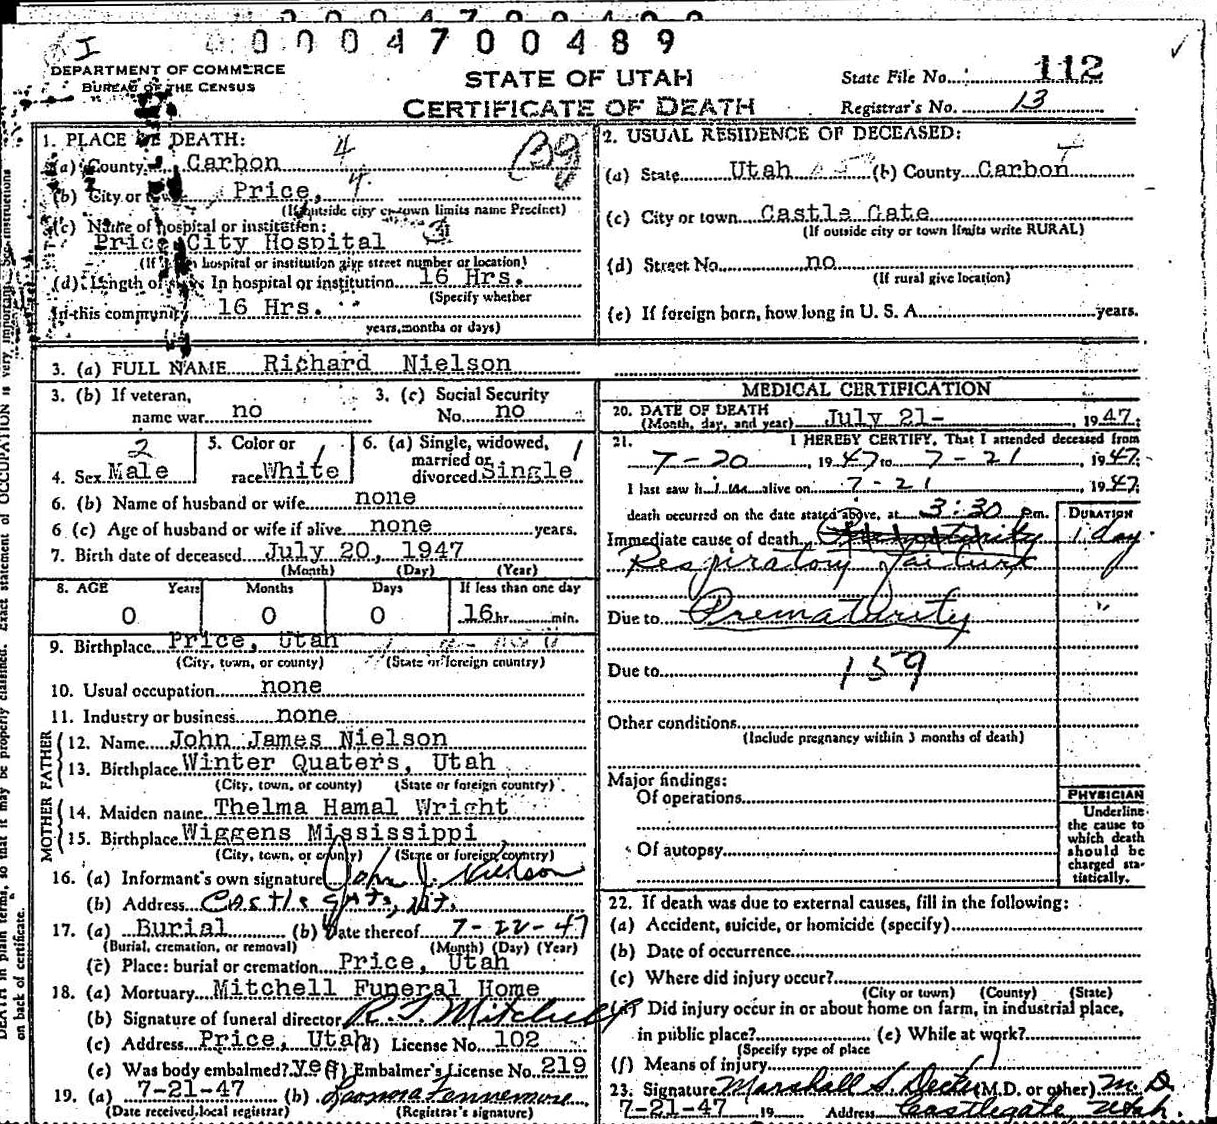 000470048 9
I
DEPARTMENT OF COMMERCE
BUREAU OF THE CENSUS
STATE OF UTAH
CERTIFICATE OF DEATH
State File No. 112
Registrar's No. 13
1. PLACE OF DEATH: 4
(a) County Carbon
(b) City or Price, 4
(If outside city or town limits name Precinct)
(c) Name of hospital or institution: 3
Price City Hospital
(If hospital or institution give street number or location)
(d) Length of In hospital or institution 16 Hrs.
(Specify whether
In this community 16 Hrs.
years, months or days)
2. USUAL RESIDENCE OF DECEASED:
(a) State Utah (b) County Carbon
(c) City or town Castle Gate
(If outside city or town limits write RURAL)
(d) Street No. no
(If rural give location)
(e) If foreign born, how long in U. S. A. years.
3. (a) FULL NAME Richard Nielson
3. (b) If veteran, name war no
3. (c) Social Security No. no
4. Sex Male 2
5. Color or race White 1
6. (a) Single, widowed, married or divorced Single 1
6. (b) Name of husband or wife none
6 (c) Age of husband or wife if alive none years.
7. Birth date of deceased July 20, 1947
(Month) (Day) (Year)
8. AGE Years Months Days If less than one day
0 0 0 16 hr. min.
9. Birthplace Price, Utah
(City, town, or county) (State or foreign country)
10. Usual occupation none
11. Industry or business none
FATHER
12. Name John James Nielson
13. Birthplace Winter Quaters, Utah
(City, town, or county) (State or foreign country)
MOTHER
14. Maiden name Thelma Hamal Wright
15. Birthplace Wiggens Mississippi
(City, town, or county) (State or foreign country)
16. (a) Informant's own signature John J. Nielson
(b) Address Castle gate, Ut.
17. (a) Burial (b) Date thereof 7-22-47
(Burial, cremation, or removal) (Month) (Day) (Year)
(c) Place: burial or cremation Price, Utah
18. (a) Mortuary Mitchell Funeral Home
(b) Signature of funeral director R. F. Mitchell
(c) Address Price, Utah (d) License No. 102
(e) Was body embalmed? yes (f) Embalmer's License No. 219
19. (a) 7-21-47 (b) Leonora Fennemore
(Date received local registrar) (Registrar's signature)
MEDICAL CERTIFICATION
20. DATE OF DEATH July 21- , 1947;
(Month, day, and year)
21. I HEREBY CERTIFY, That I attended deceased from
7-20, 1947 to 7-21, 1947
I last saw him alive on 7-21, 1947;
death occurred on the date stated above, at 3:30 P.m.
DURATION
Immediate cause of death 1 day
Respiratory failure
Due to Prematurity "
Due to 159
Other conditions
(Include pregnancy within 3 months of death)
Major findings:
Of operations
Of autopsy
PHYSICIAN
Underline
the cause to
which death
should be
charged sta-
tistically.
22. If death was due to external causes, fill in the following:
(a) Accident, suicide, or homicide (specify)
(b) Date of occurrence
(c) Where did injury occur?
(City or town) (County) (State)
Did injury occur in or about home on farm, in industrial place,
in public place? (e) While at work?
(Specify type of place
(f) Means of injury
23. Signature Marshall (M.D. or other) M.D.
7-21-47 19 Address Castlegate Utah.
DEATH in plain terms, so that it may be properly classified. Exact statement of OCCUPATION is very important. See instructions
on back of certificate.